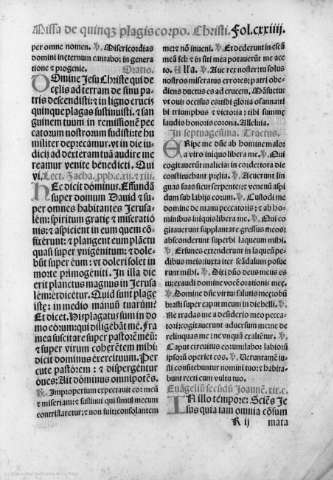 Missa de quinq3 plagis corpo. Christi. Fol.cxxiiij.
per omne nomen. ℣. Misericordias
domini in eternum cantabo: in genera
tione et progenie. Oratio.
DOmine Jesu Christe qui de
celis ad terram de sinu pa
tris descendisti: et in ligno crucis
quinque plagas sustinuisti: et san
guinem tuum in remissionē pec
catorum nostrorum fudisti: te hu
militer deprecamur. vt in die iu
dicij ad dexteram tuā audire me
reamur venite benedicti. Qui
vi. Lect. Zacha. pphe.xij. et xiij.
HEc dicit dominus. Effundā
super domum Dauid et su
per omnes habitantes Jerusa
lem: spiritum gratie et miseratio
nis: et aspicient in eum quem cō
fixerunt: et plangent eum plāctu
quasi super vnigenitum: et dole
būt super eum: vt doleri solet in
morte primogeniti. In illa die
erit planctus magnus in Jerusa
lem: et dicetur. Quid sunt plage
iste: in medio manuū tuarum?
Et dicet. His plagatus sum in do
mo eorum: qui diligebāt me. Fra
mea suscitare super pastorē meū:
et super virum coherētem mihi:
dicit dominus exercituum. Per
cute pastorē: et dispergentur
oues: Ait dominus omnipotēs.
Improperium expectauit cor meū
et miseriam: et sustinui qui simul mecum
contristaretur: et non fuit: consolantem
me et nō inueni. ℣. Et dederunt in escā
meā fel: et in siti mea potauerūt me ace
to. Alla. ℣. Aue rex noster: tu solus
nostros miseratus errores: patri obe
diens ductus es ad crucifigendum: vt
mansuetus
vt oui occisus es: tibi gloria osanna: ti
bi triumphus et victoria: tibi summe
laudis et honoris corona. Alleluia.
In septuagesima. Tractus.
ERipe me dñe ab homine malo:
a viro iniquo libera me. ℣. Qui
cogitauerūt malicias in corde: tota die
constituebant prelia. ℣. Acuerunt lin
guas suas sicut serpentes: venenū aspi
dum sub labijs eorum. ℣. Custodi me
domine de manu peccatoris: et ab homi
nibus iniquis libera me. ℣. Qui co
gitauerūt supplantare gressus meos:
absconderunt superbi laqueum mihi.
℣. Et funes extenderunt in laqueū pe
dibus meis: iuxta iter scādalum posue
runt mihi. ℣. Dixi dño deus meus es
tu: exaudi domine vocē orationis mee.
℣. Domine dñe virtus salutis mee: obū
brasti super caput meum in die belli. ℣.
Ne tradas me a desiderio meo pecca
tori: cogitauerunt aduersum me: ne de
relinquas me ne vnquā exaltētur. ℣.
Caput circuitus eorum: labor labiorū
ipsorū operiet eos. ℣. Verumtamē iu
sti confitebuntur nomini tuo: et habita
bunt recti cum vultu tuo.
Euāgeliū secūdū Joannē.xix.c.
IN illo tempore: Sciēs Je
sus quia iam omnia cōsum
R ij mata